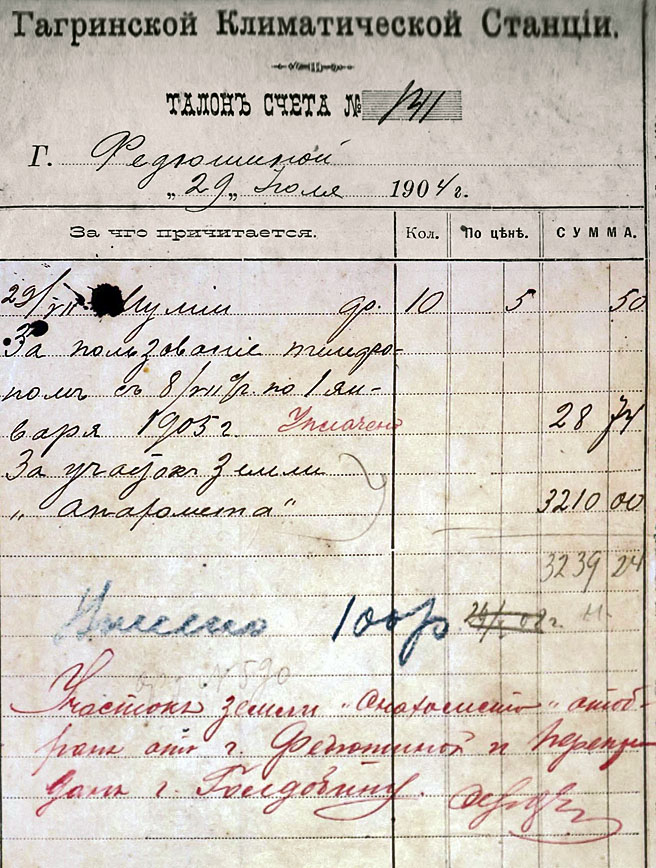 Гагринской Климатической Станціи.
ТАЛОНЪ СЧЕТА № 141
Г. Федюшиной
„29„ Іюля 1904 г.
За что причитается. Кол. По цѣнѣ. СУММА.
29/VII др. 10 5 50
За пользованіе телефо-
номъ съ 8/VII по 1 ян-
варя 1905 г Уплачено 28 74
За участокъ земли
3210 00
3239 24
100 р
Участокъ земли отоб-
ранъ отъ г. Федюшиной и
данъ г.